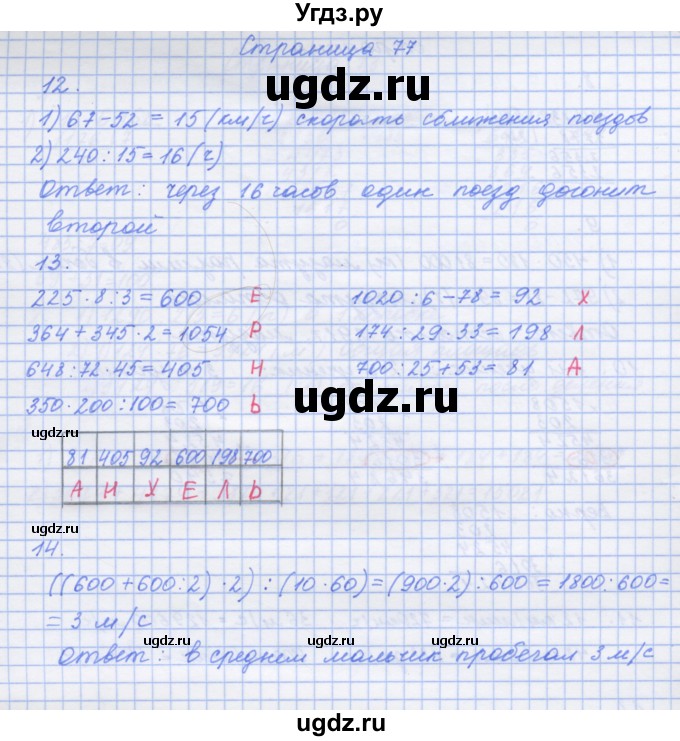 Угдз.ру
Страница 77
12.
1) 67-52 = 15 (км/ч) скорость сближения поездов
2) 240:15=16 (ч)
Ответ: через 16 часов один поезд догонит
второй
13.
225·8:3=600 Е
364+345·2=1054 Р
648:72·45=405 Н
350·200:100=700 Ь
1020:6-78=92 Х
174:29·33=198 Л
700:25+53=81 А
81 405 92 600 198 700
А Н Х Е Л Ь
14.
((600+600:2)·2):(10·60)=(900·2):600=1800:600=
=3 м/с
Ответ: в среднем мальчик пробегал 3 м/с
ugdz.ru
ugdz.ru
ugdz.ru
ugdz.ru
ugdz.ru
ugdz.ru
ugdz.ru
ugdz.ru
ugdz.ru
ugdz.ru
ugdz.ru
ugdz.ru